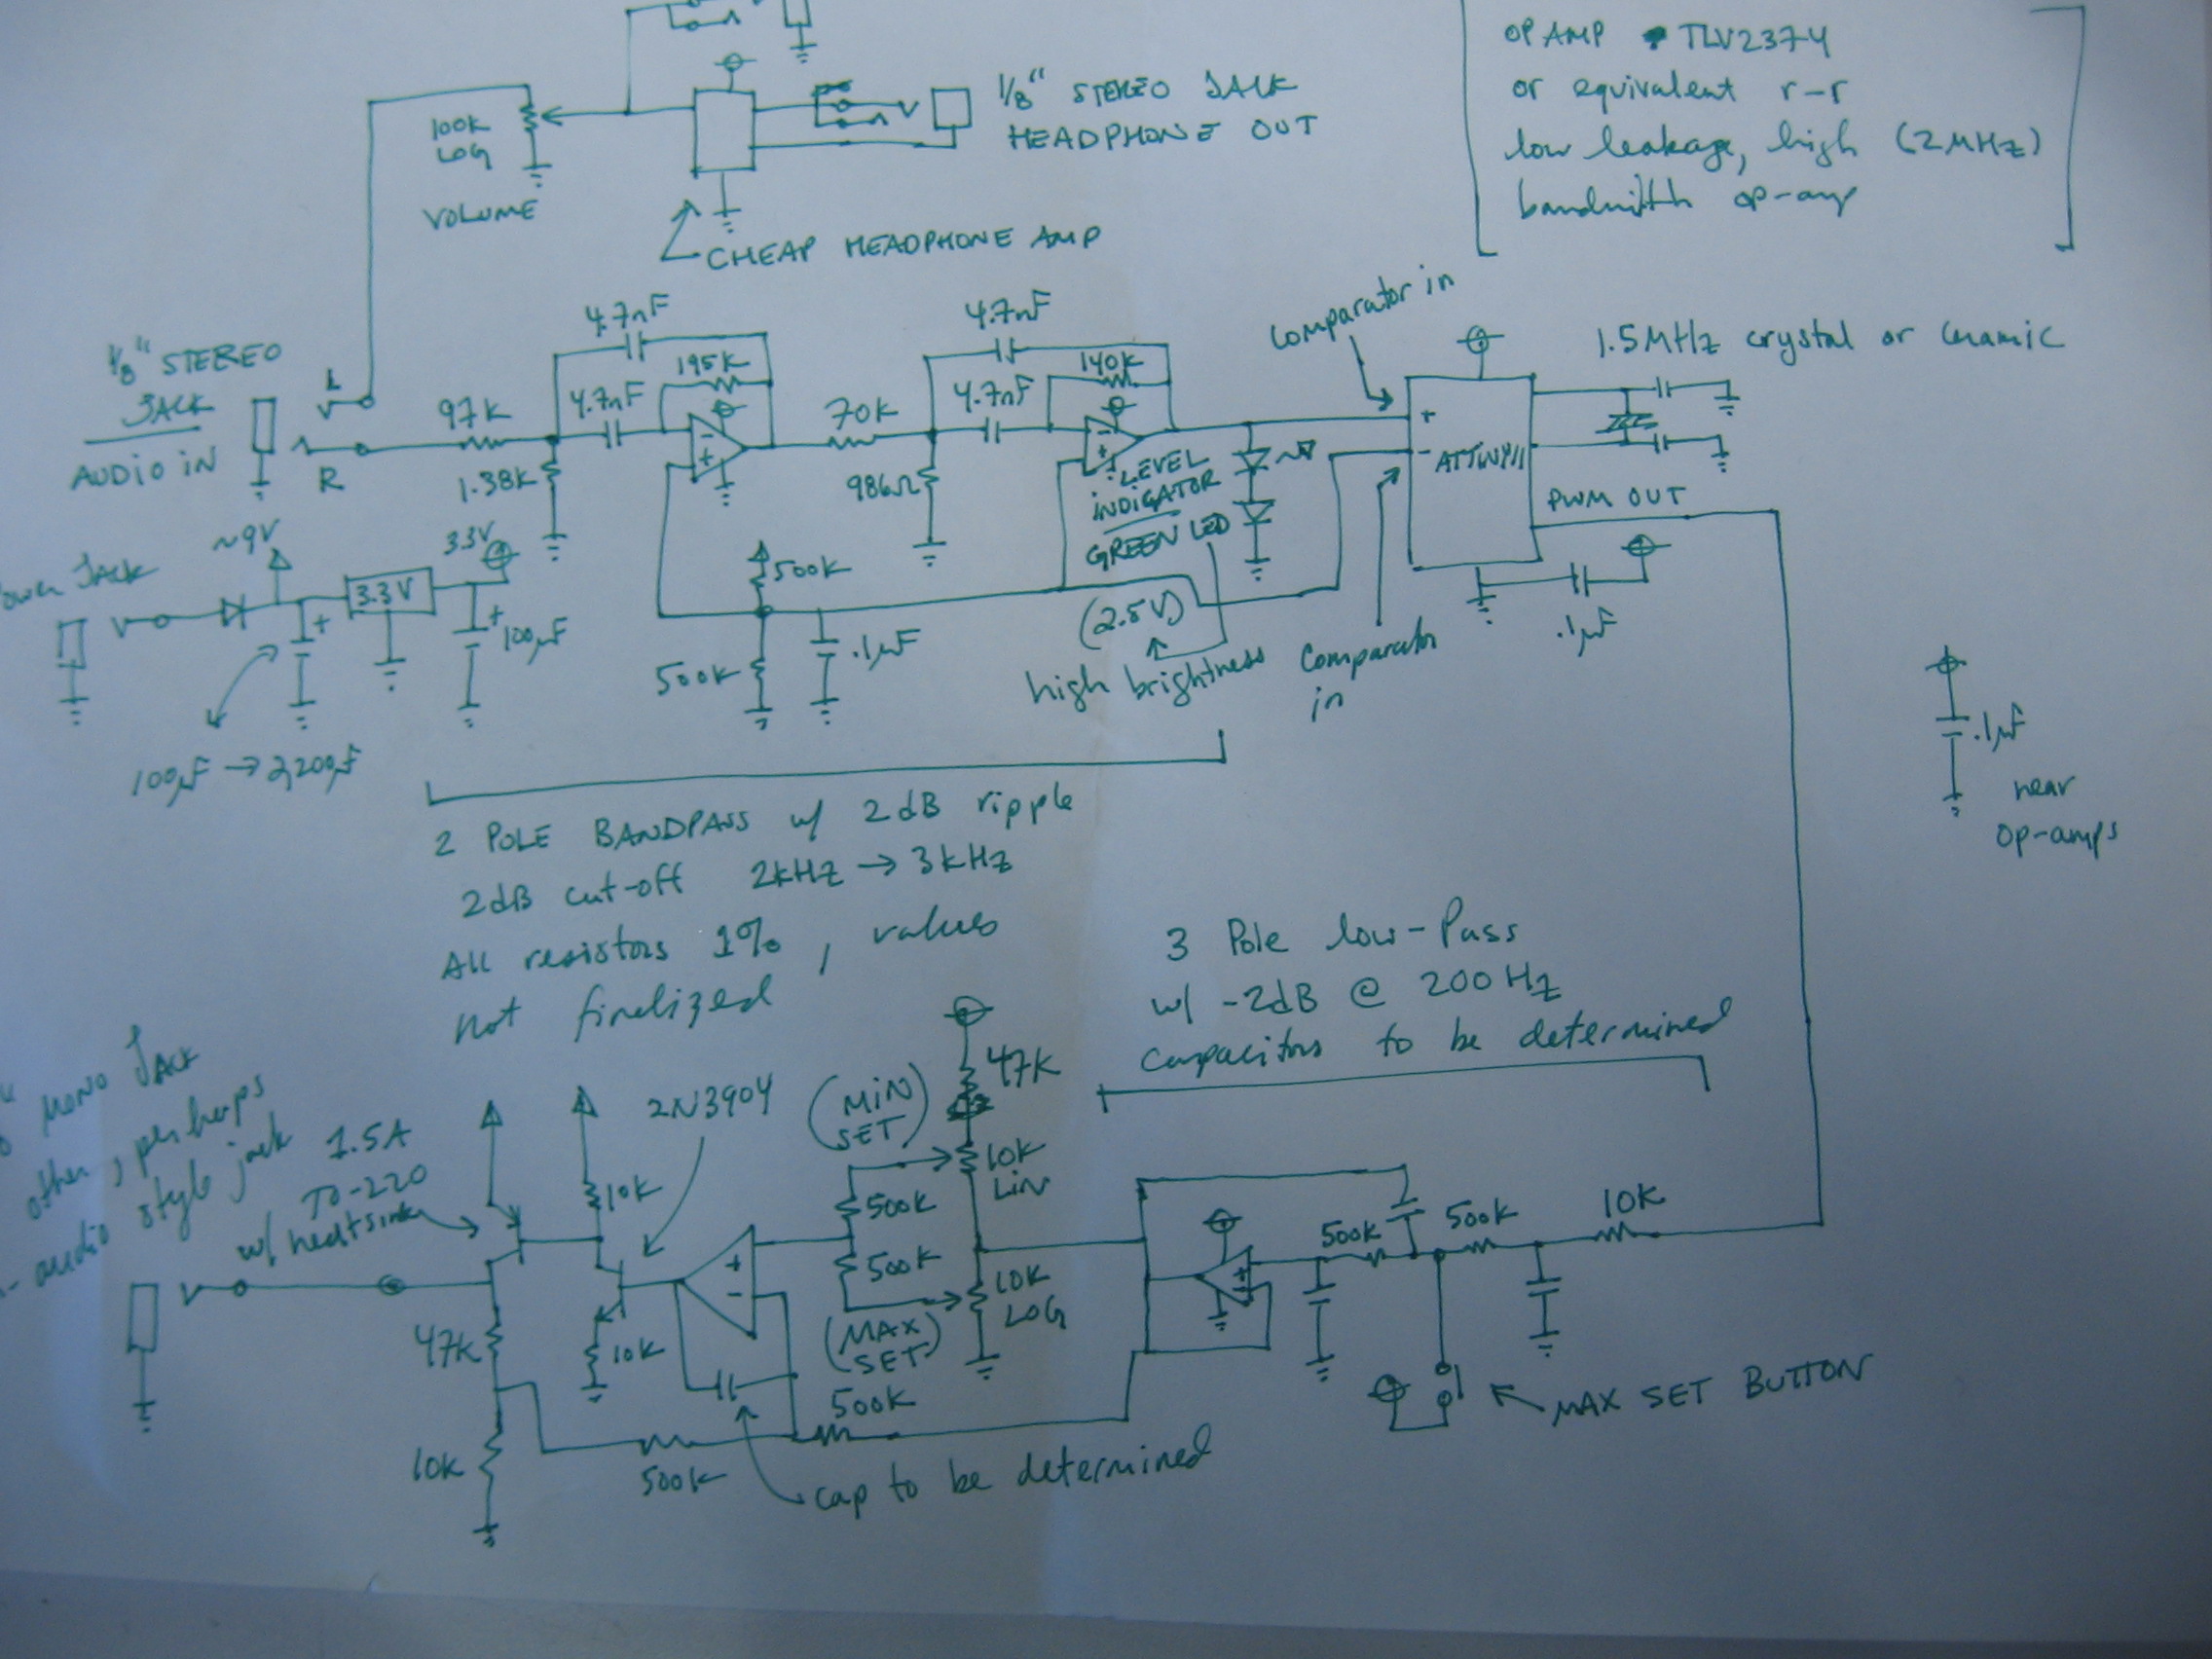 100K
LOG
VOLUME
1/8" STEREO JACK
HEADPHONE OUT
CHEAP HEADPHONE AMP
OP AMP TLV2374
or equivalent r-r
low leakage, high (2MHz)
bandwitth op-amp
1/8" STEREO
JACK
AUDIO IN
L
R
97K
1.38K
4.7nF
4.7nF
195K
-
+
70K
986Ω
4.7nF
4.7nF
140K
-
+
LEVEL
INDIGATOR
GREEN LED
Comparator in
+
-
ATTINY11
1.5MHz crystal or ceramic
PWM OUT
.1µF
Jack
~9V
+
3.3V
3.3V
+
100µF
100µF → 2,200µF
500K
500K
.1µF
(2.5V)
high brightness
Comparator
in
.1µF
near
op-amps
2 POLE BANDPASS w/ 2dB ripple
2dB cut-off 2kHz → 3kHz
All resistors 1%, values
not finalized
3 Pole low-Pass
w/ -2dB @ 200Hz
Capacitors to be determined
MONO JACK
other, perhaps
audio style jack
1.5A
TO-220
w/ heatsink
2N3904
10K
10K
47K
10K
(MIN
SET)
47K
10K
LIN
500K
500K
10K
LOG
(MAX
SET)
+
-
500K
500K
cap to be determined
+
-
500K
500K
10K
MAX SET BUTTON